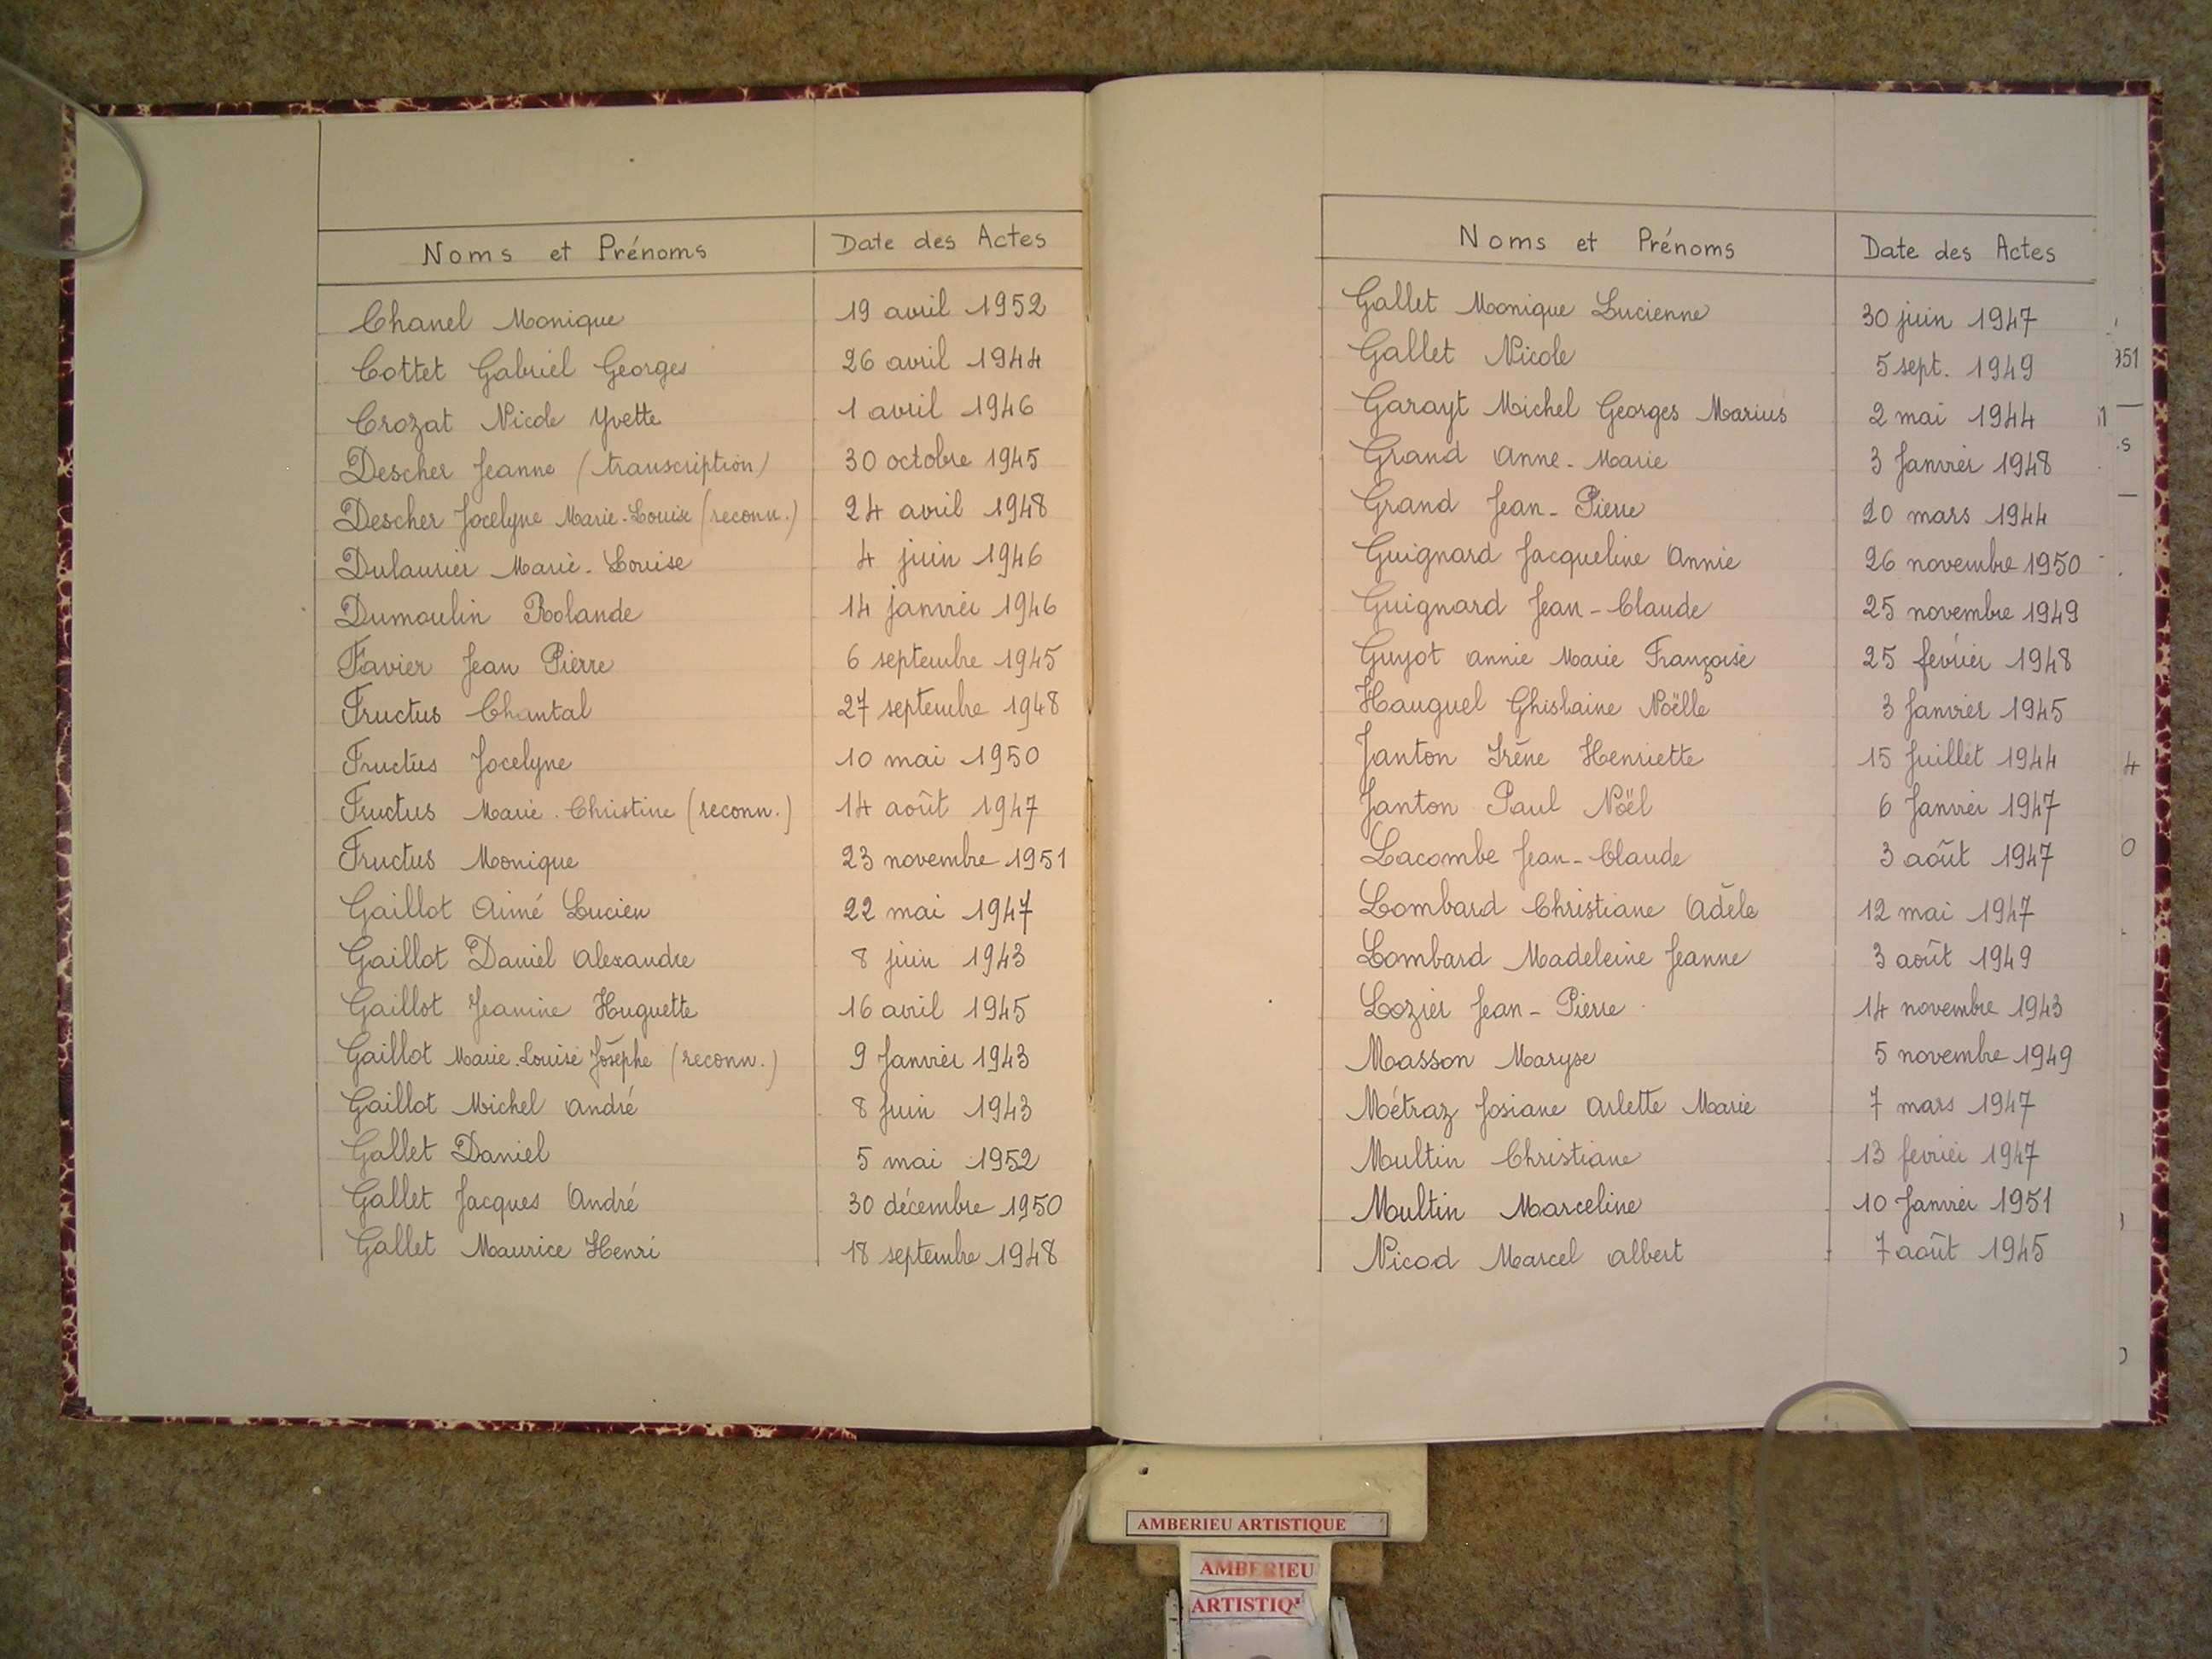 Noms et Prénoms Date des Actes
Chanel Monique 19 avril 1952
Cottet Gabriel Georges 26 avril 1944
Crozat Nicole Yvette 1 avril 1946
Descher Jeanne (transcription) 30 octobre 1945
Descher Jocelyne Marie-Louise (reconn.) 24 avril 1948
Dulaurier Marie-Louise 4 juin 1946
Dumoulin Rolande 14 janvier 1946
Favier Jean Pierre 6 septembre 1945
Fructus Chantal 27 septembre 1948
Fructus Jocelyne 10 mai 1950
Fructus Marie-Christine (reconn.) 14 août 1947
Fructus Monique 23 novembre 1951
Gaillot Aimé Lucien 22 mai 1947
Gaillot Daniel Alexandre 8 juin 1943
Gaillot Jeanine Huguette 16 avril 1945
Gaillot Marie-Louise Josèphe (reconn.) 9 Janvier 1943
Gaillot Michel André 8 Juin 1943
Gallet Daniel 5 mai 1952
Gallet Jacques André 30 décembre 1950
Gallet Maurice Henri 18 septembre 1948
Noms et Prénoms Date des Actes
Gallet Monique Lucienne 30 juin 1947
Gallet Nicole 5 sept. 1949
Garayt Michel Georges Marius 2 mai 1944
Grand Anne-Marie 3 Janvier 1948
Grand Jean-Pierre 20 mars 1944
Guignard Jacqueline Annie 26 novembre 1950
Guignard Jean-Claude 25 novembre 1949
Guyot Annie Marie Françoise 25 février 1948
Hauguel Ghislaine Noëlle 3 Janvier 1945
Janton Irène Henriette 15 Juillet 1944
Janton Paul Noël 6 Janvier 1947
Lacombe Jean-Claude 3 août 1947
Lombard Christiane Adèle 12 mai 1947
Lombard Madeleine Jeanne 3 août 1949
Lozier Jean-Pierre 14 novembre 1943
Masson Maryse 5 novembre 1949
Métraz Josiane Arlette Marie 7 mars 1947
Moultin Christiane 13 février 1947
Moultin Marceline 10 Janvier 1951
Nicod Marcel Albert 7 août 1945
AMBERIEU ARTISTIQUE
AMBERIEU
ARTISTIQ